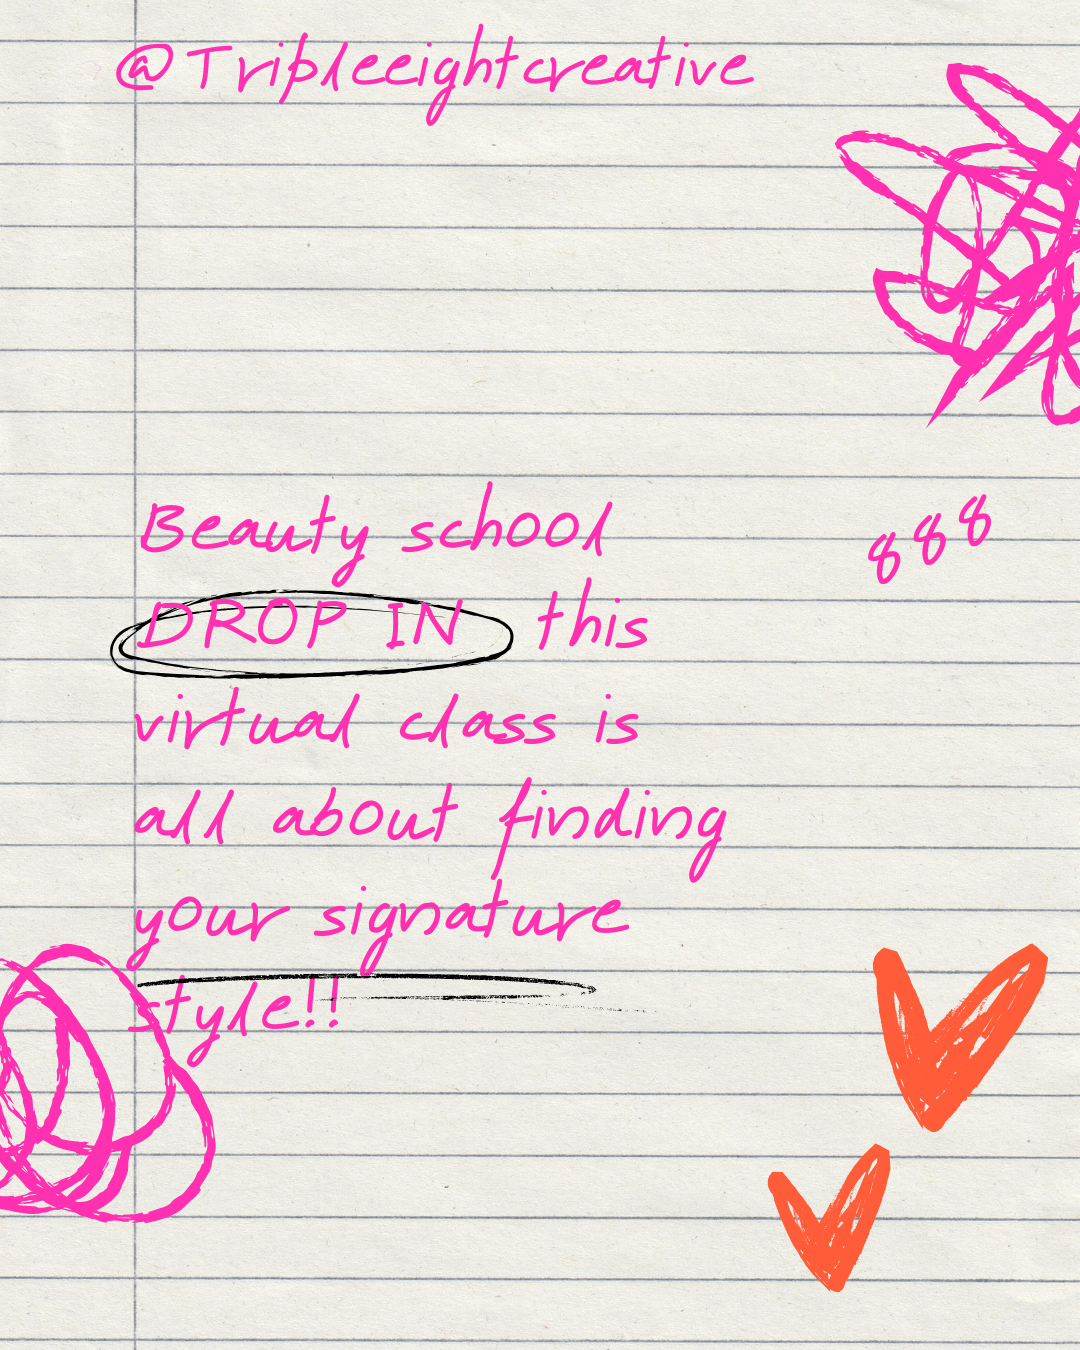 @Tripleeightcreative
Beauty school
888
DROP IN this
virtual class is
all about finding
your signature
style!!